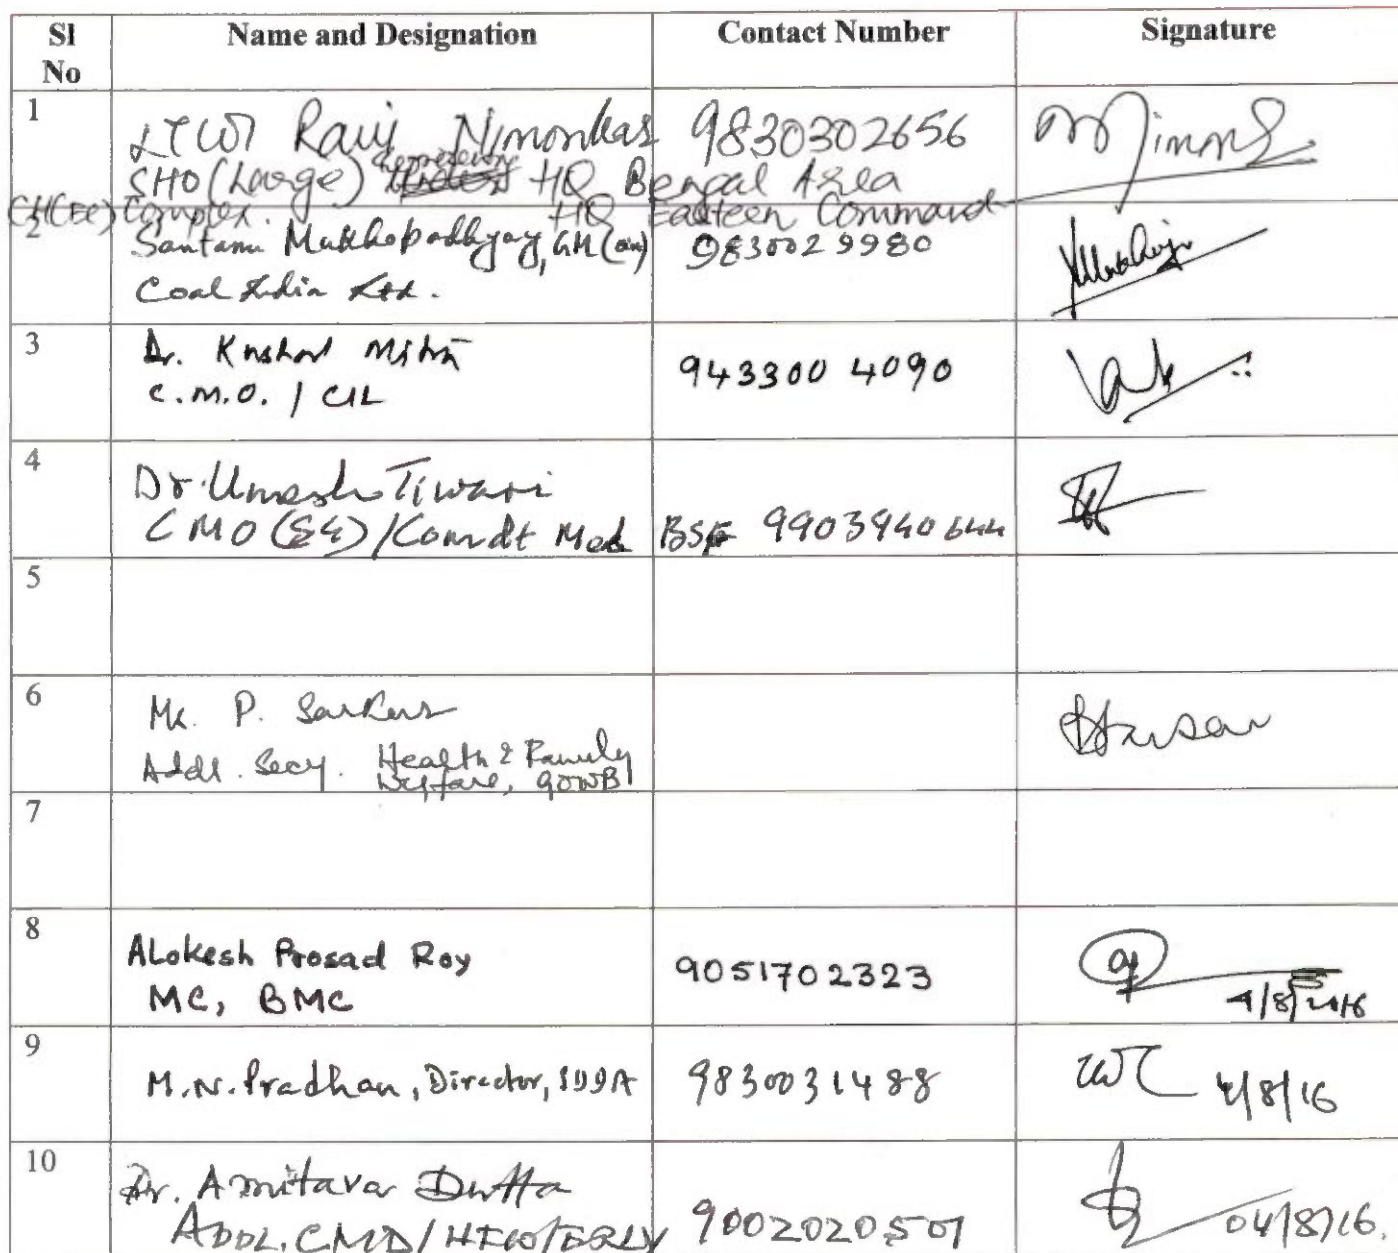 Sl No Name and Designation Contact Number Signature
1 Lt Col Ravi Nimonkar 9830302656
SHO (Large) Representing HQ Bengal Area
CH(EC) Complex. HQ Eastern Command
2 Santanu Mukhopadhyay, GM 9830029980
Coal India Ltd.
3 Dr. Kushal Mitra 943300 4090
C.M.O. / CIL
4 Dr. Umesh Tiwari
CMO (SG)/Comdt Med BSF 9903940644
5
6 P. Sarkar
Addl. Secy. Health & Family
Welfare, GOWB
7
8 Alokesh Prosad Roy 9051702323
MC, BMC 4/8/2016
9 M.N. Pradhan, Director, 9830031488 4/8/16
10 Dr. Amitava Dutta
ADDL. CMD/HFW/ERLY 9002020501 04/8/16.